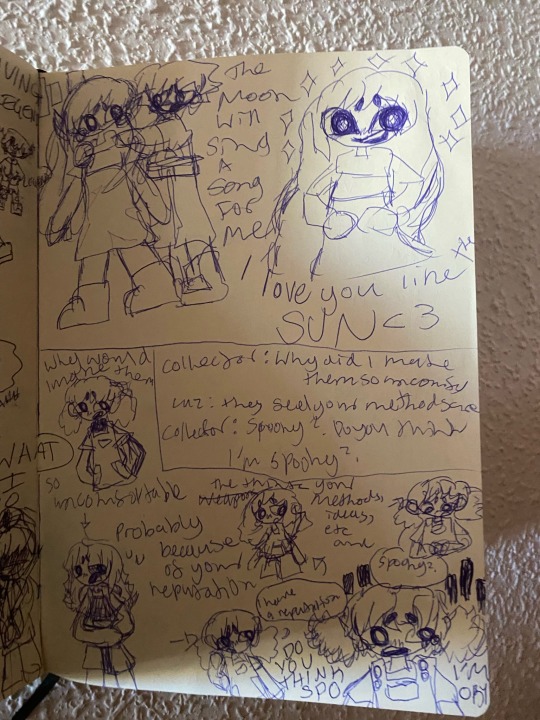 The
Moon
Will
Sing
A
Song
For
Me
I love you like
SUN <3
Why would
I make them
so
uncomfortable
Collector: Why did I make
them so uncomfy
Luz: they see your methods
Collector: Spoohy? Do you think
I'm spoohy?
WHAT
Probably
because
of your
reputation
your
methods,
ideas,
etc
and
Spoohy?
I have
a reputation
DO
YOU
THINK
I'M